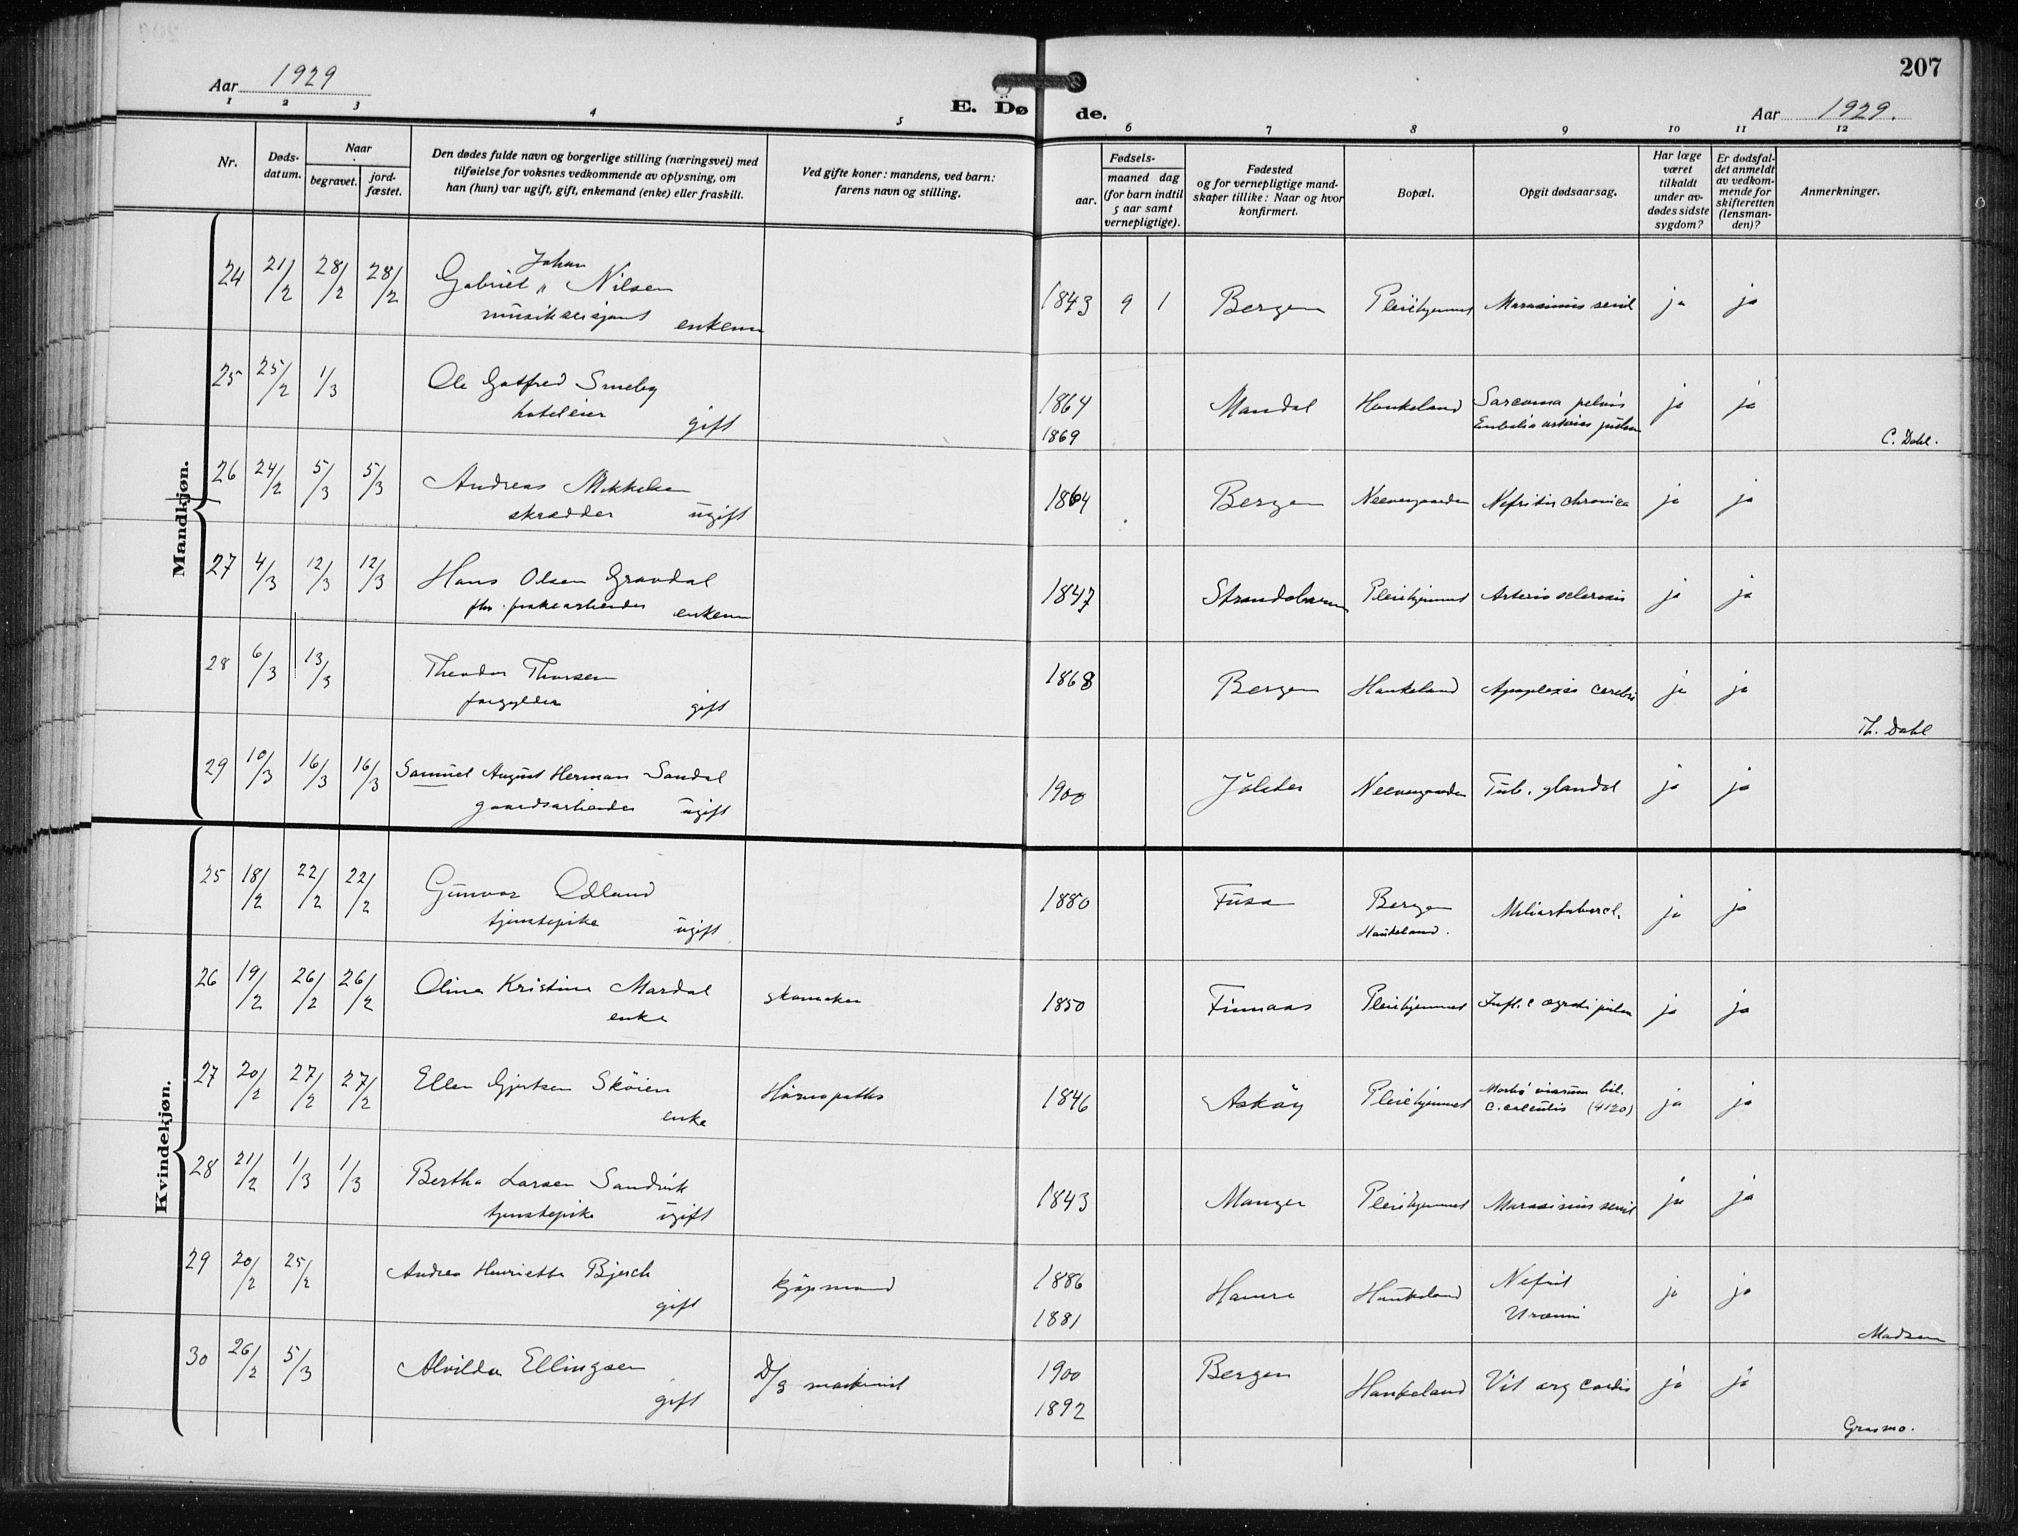 207
Aar 1929
E. Døde.
Aar 1929.
1 2 3 4 5 6 7 8 9 10 11 12
Nr.
Døds-
datum.
Naar
begravet.
jord-
fæstet.
Den dødes fulde navn og borgerlige stilling (næringsvei) med
tilføielse for voksnes vedkommende av oplysning, om
han (hun) var ugift, gift, enkemand (enke) eller fraskilt.
Ved gifte koner: mandens, ved barn:
farens navn og stilling.
Fødsels-
aar.
maaned dag
(for barn indtil
5 aar samt
vernepligtige).
Fødested
og for vernepligtige mand-
skaper tillike: Naar og hvor
konfirmert.
Bopæl.
Opgit dødsaarsag.
Har læge
været
tilkaldt
under av-
dødes sidste
sygdom?
Er dødsfal-
det anmeldt
av vedkom-
mende for
skifteretten
(lensman-
den)?
Anmerkninger.
Mandkjøn.
24 21/2 28/2 28/2 Gabriel Johan Nilsen 1843 9 1 Bergen Pleiehjemmet Marasimus senil ja ja
enkem
25 25/2 1/3 Ole Gotfred Smeby 1864 Mandal Haukeland Sarcoma pelvis ja ja
hoteleier gift 1869 C. Dahl.
26 24/2 5/3 5/3 Andreas Mikkelsen 1864 Bergen Neevengaarden Nefritis chronica ja ja
skrædder ugift
27 4/3 12/3 12/3 Hans Olsen Gravdal 1847 Strandebarm Pleiehjemmet Arterio sclerosis ja ja
enkem
28 6/3 13/3 Theodor Thorsen 1868 Bergen Haukeland Apoplexia cerebri ja ja
forgylder gift Th. Dahl
29 10/3 16/3 16/3 Samuel August Herman Sandal 1900 Jölster Neevengaarden Tub. gland ja ja
gaardsarbeider ugift
Kvindekjøn.
25 18/2 22/2 22/2 Gunvor Ødland 1880 Fusa Bergen Miliartubercl. ja ja
tjenstepike ugift Haukeland.
26 19/2 26/2 26/2 Olina Kristine Mardal skomaker 1850 Finnaas Pleiehjemmet ja ja
enke
27 20/2 27/2 27/2 Ellen Gjertsen Sköien Homøopath 1846 Asköy Pleiehjemmet Morbi viarum bil.
enke c. calculis (4120) ja ja
28 21/2 1/3 1/3 Bertha Larsen Sandvik 1843 Manger Pleiehjemmet Marasimus senil ja ja
tjenstepike ugift
29 20/2 25/2 Andrea Henriette Bjerck kjöpmand 1886 Hamre Haukeland Nefrit ja ja
gift 1881 Uræmi Madsen
30 26/2 5/3 Alvilda Ellingsen D/s maskinist 1900 Bergen Haukeland Vit org cordis ja ja
gift 1892 Grasmo.